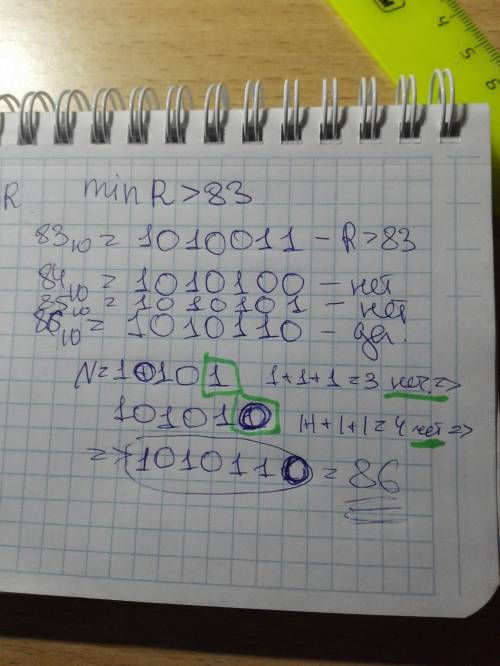 R min R > 83
83₁₀ = 1010011 – R > 83
84₁₀ = 1010100 – нет
85₁₀ = 1010101 – нет
86₁₀ = 1010110 – да.
N = 10101 1+1+1=3 нет. =>
101010 1+1+1+1=4 нет =>
=> 1010110 = 86
4 5 6